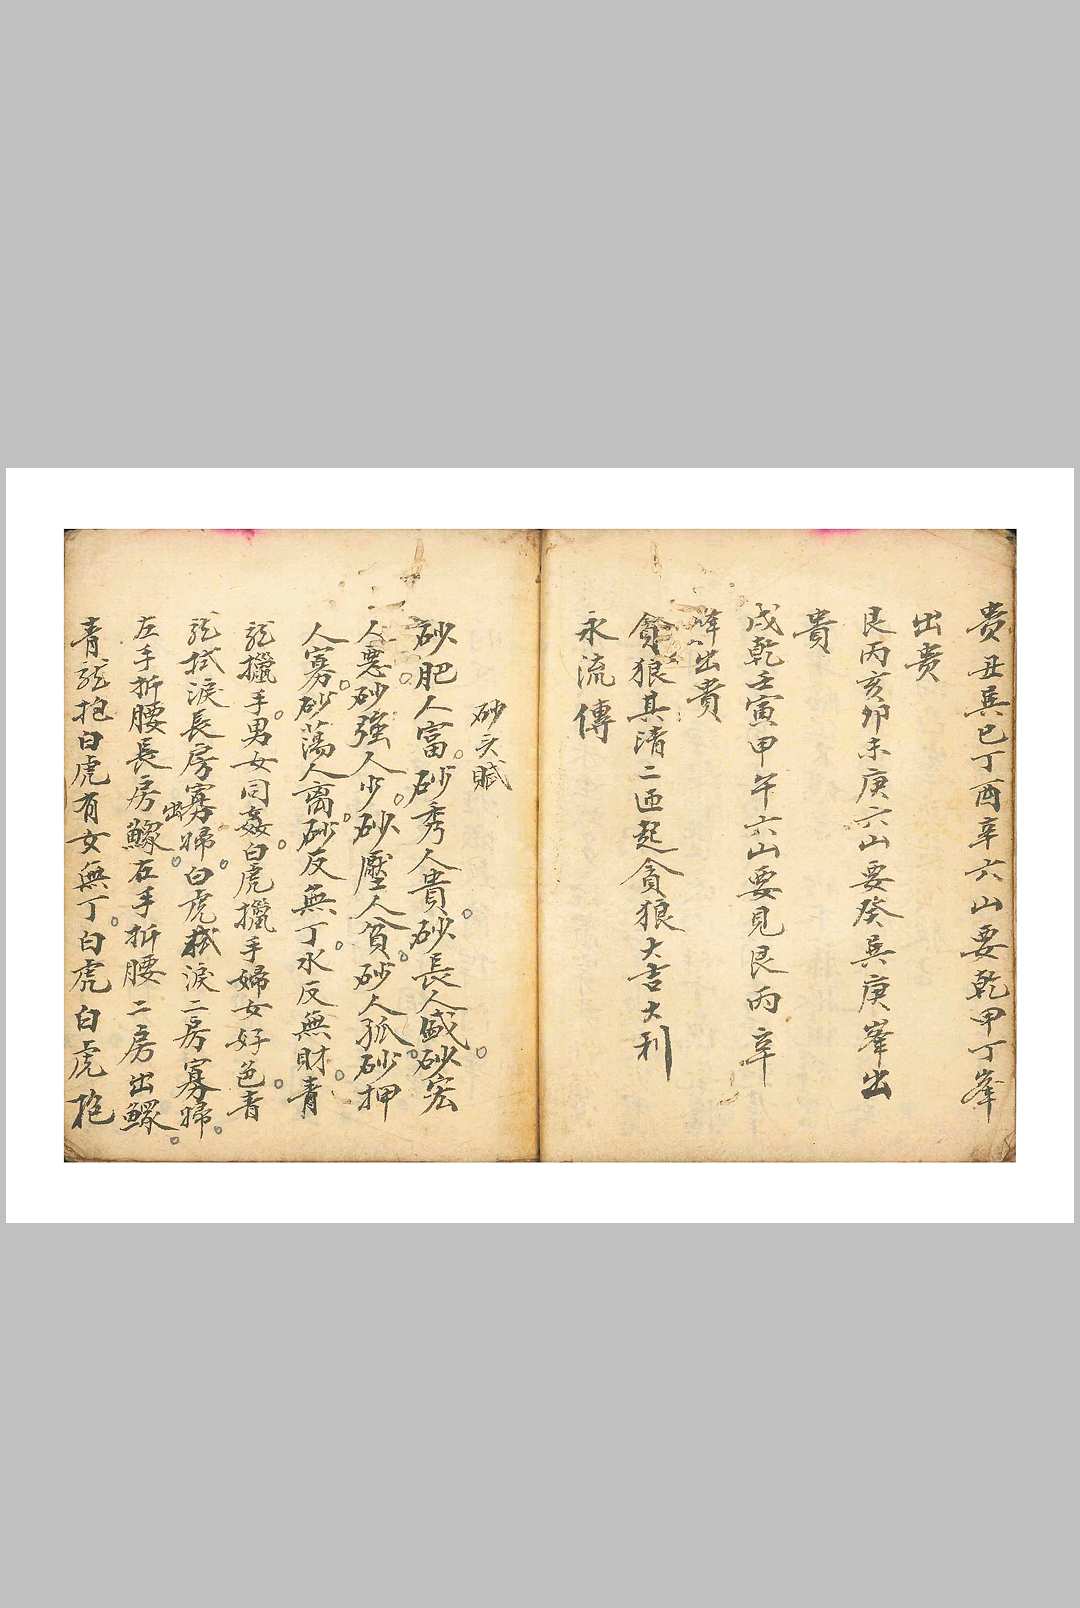 贵丑巽巳丁酉辛六山要乾甲丁峯
出贵
艮丙亥卯未庚六山要癸巽庚峯出
貴
戌乾壬寅甲午六山要見艮丙辛
峰出貴
貪狼其清二迊起貪狼大吉大利
永流傳
砂头賦
砂肥人富砂秀人貴砂長人盛砂宏
人悪砂強人少砂壓人貧砂人孤砂押
人寡砂蕩人离砂反無丁水反無財青
龍擸手男女同姦白虎擸手婦女好色青
龍拭淚長房出寡婦白虎拭淚二房寡婦
左手折腰長房鰥右手折腰二房出鰥
青龍抱白虎有女無丁白虎白虎抱